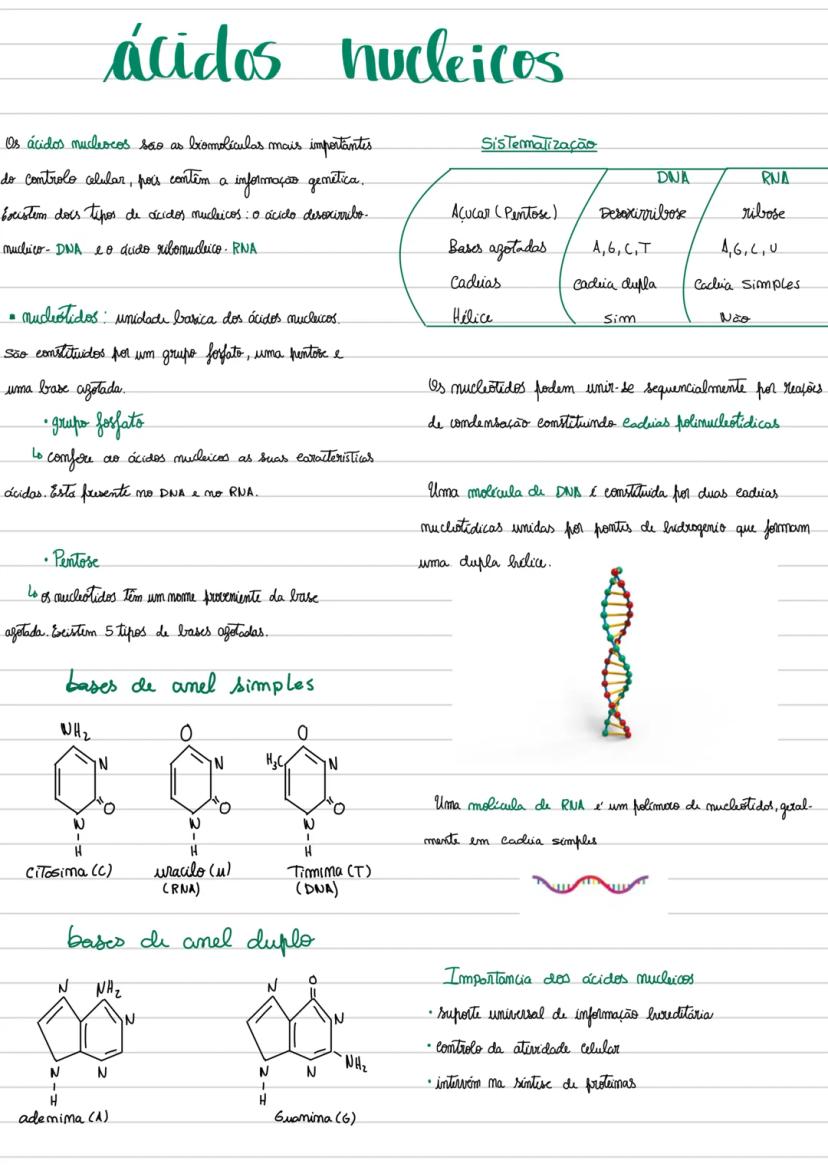 ácidos nucleicos
Os ácidos nucleicos são as biomoléculas mais importantes
do controlo celular, pois contêm a informação genética.
Existem dois tipos de ácidos nucleicos: o ácido desoxirribo-
nucleico - DNA e o ácido ribonucleico - RNA
▪ nucleótidos: unidade basica dos ácidos nucleicos.
são constituidos por um grupo fosfato, uma pentose e
uma base azotada.
• grupo fosfato
↳ confere ao ácidos nucleicos as suas características
ácidas. Está presente no DNA e no RNA.
• Pentose
↳ os nucleótidos têm um nome proveniente da base
azotada. Existem 5 tipos de bases azotadas.
bases de anel simples
NH₂ O O
N N H₃C N
O O O
N N N
H H H
citosina (C) uracilo (u) Timina (T)
(RNA) (DNA)
bases de anel duplo
N NH₂ N O
N N
N N N N NH₂
H H
adenina (A) Guanina (G)
Sistematização
DNA RNA
Açucar (Pentose) Desoxirribose ribose
Bases azotadas A, G, C, T A, G, C, U
Cadeias cadeia dupla Cadeia simples
Hélice sim Não
Os nucleótidos podem unir-se sequencialmente por reações
de condensação constituindo cadeias polinucleotídicas
Uma molécula de DNA é constituída por duas cadeias
nucleotídicas unidas por pontes de hidrogenio que formam
uma dupla hélice.
Uma molécula de RNA é um polímero de nucleótidos, geral-
mente em cadeia simples
Importancia dos ácidos nucleicos
• suporte universal de informação hereditária
• controlo da atividade celular
• intervém na síntese de proteinas